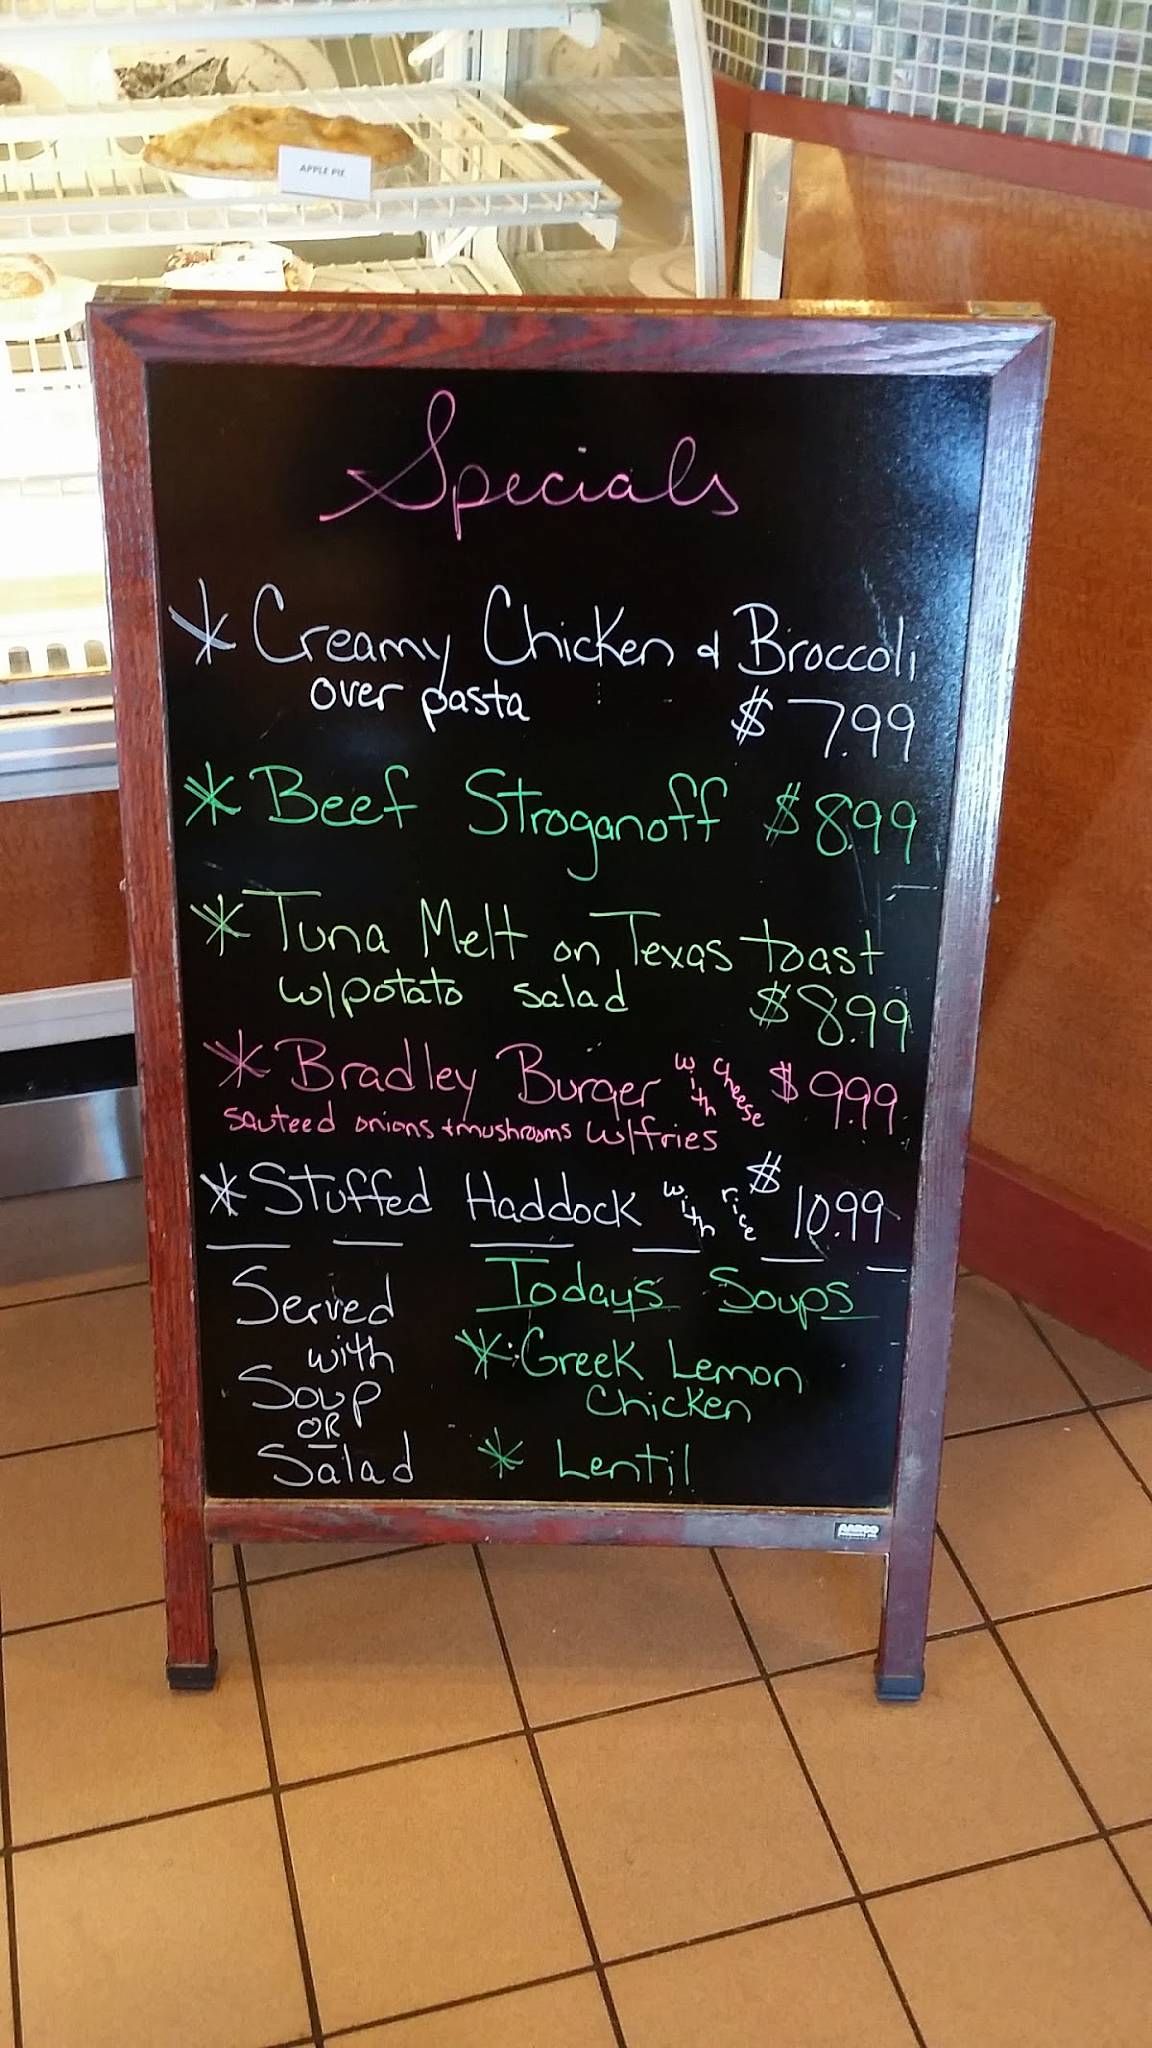 APPLE PIE
Specials
* Creamy Chicken & Broccoli
over pasta $7.99
* Beef Stroganoff $8.99
* Tuna Melt on Texas toast
w/potato salad $8.99
* Bradley Burger with cheese $9.99
sauteed onions + mushrooms w/fries
* Stuffed Haddock with rice $10.99
Served
with
Soup
OR
Salad
Todays Soups
* Greek Lemon
Chicken
* Lentil